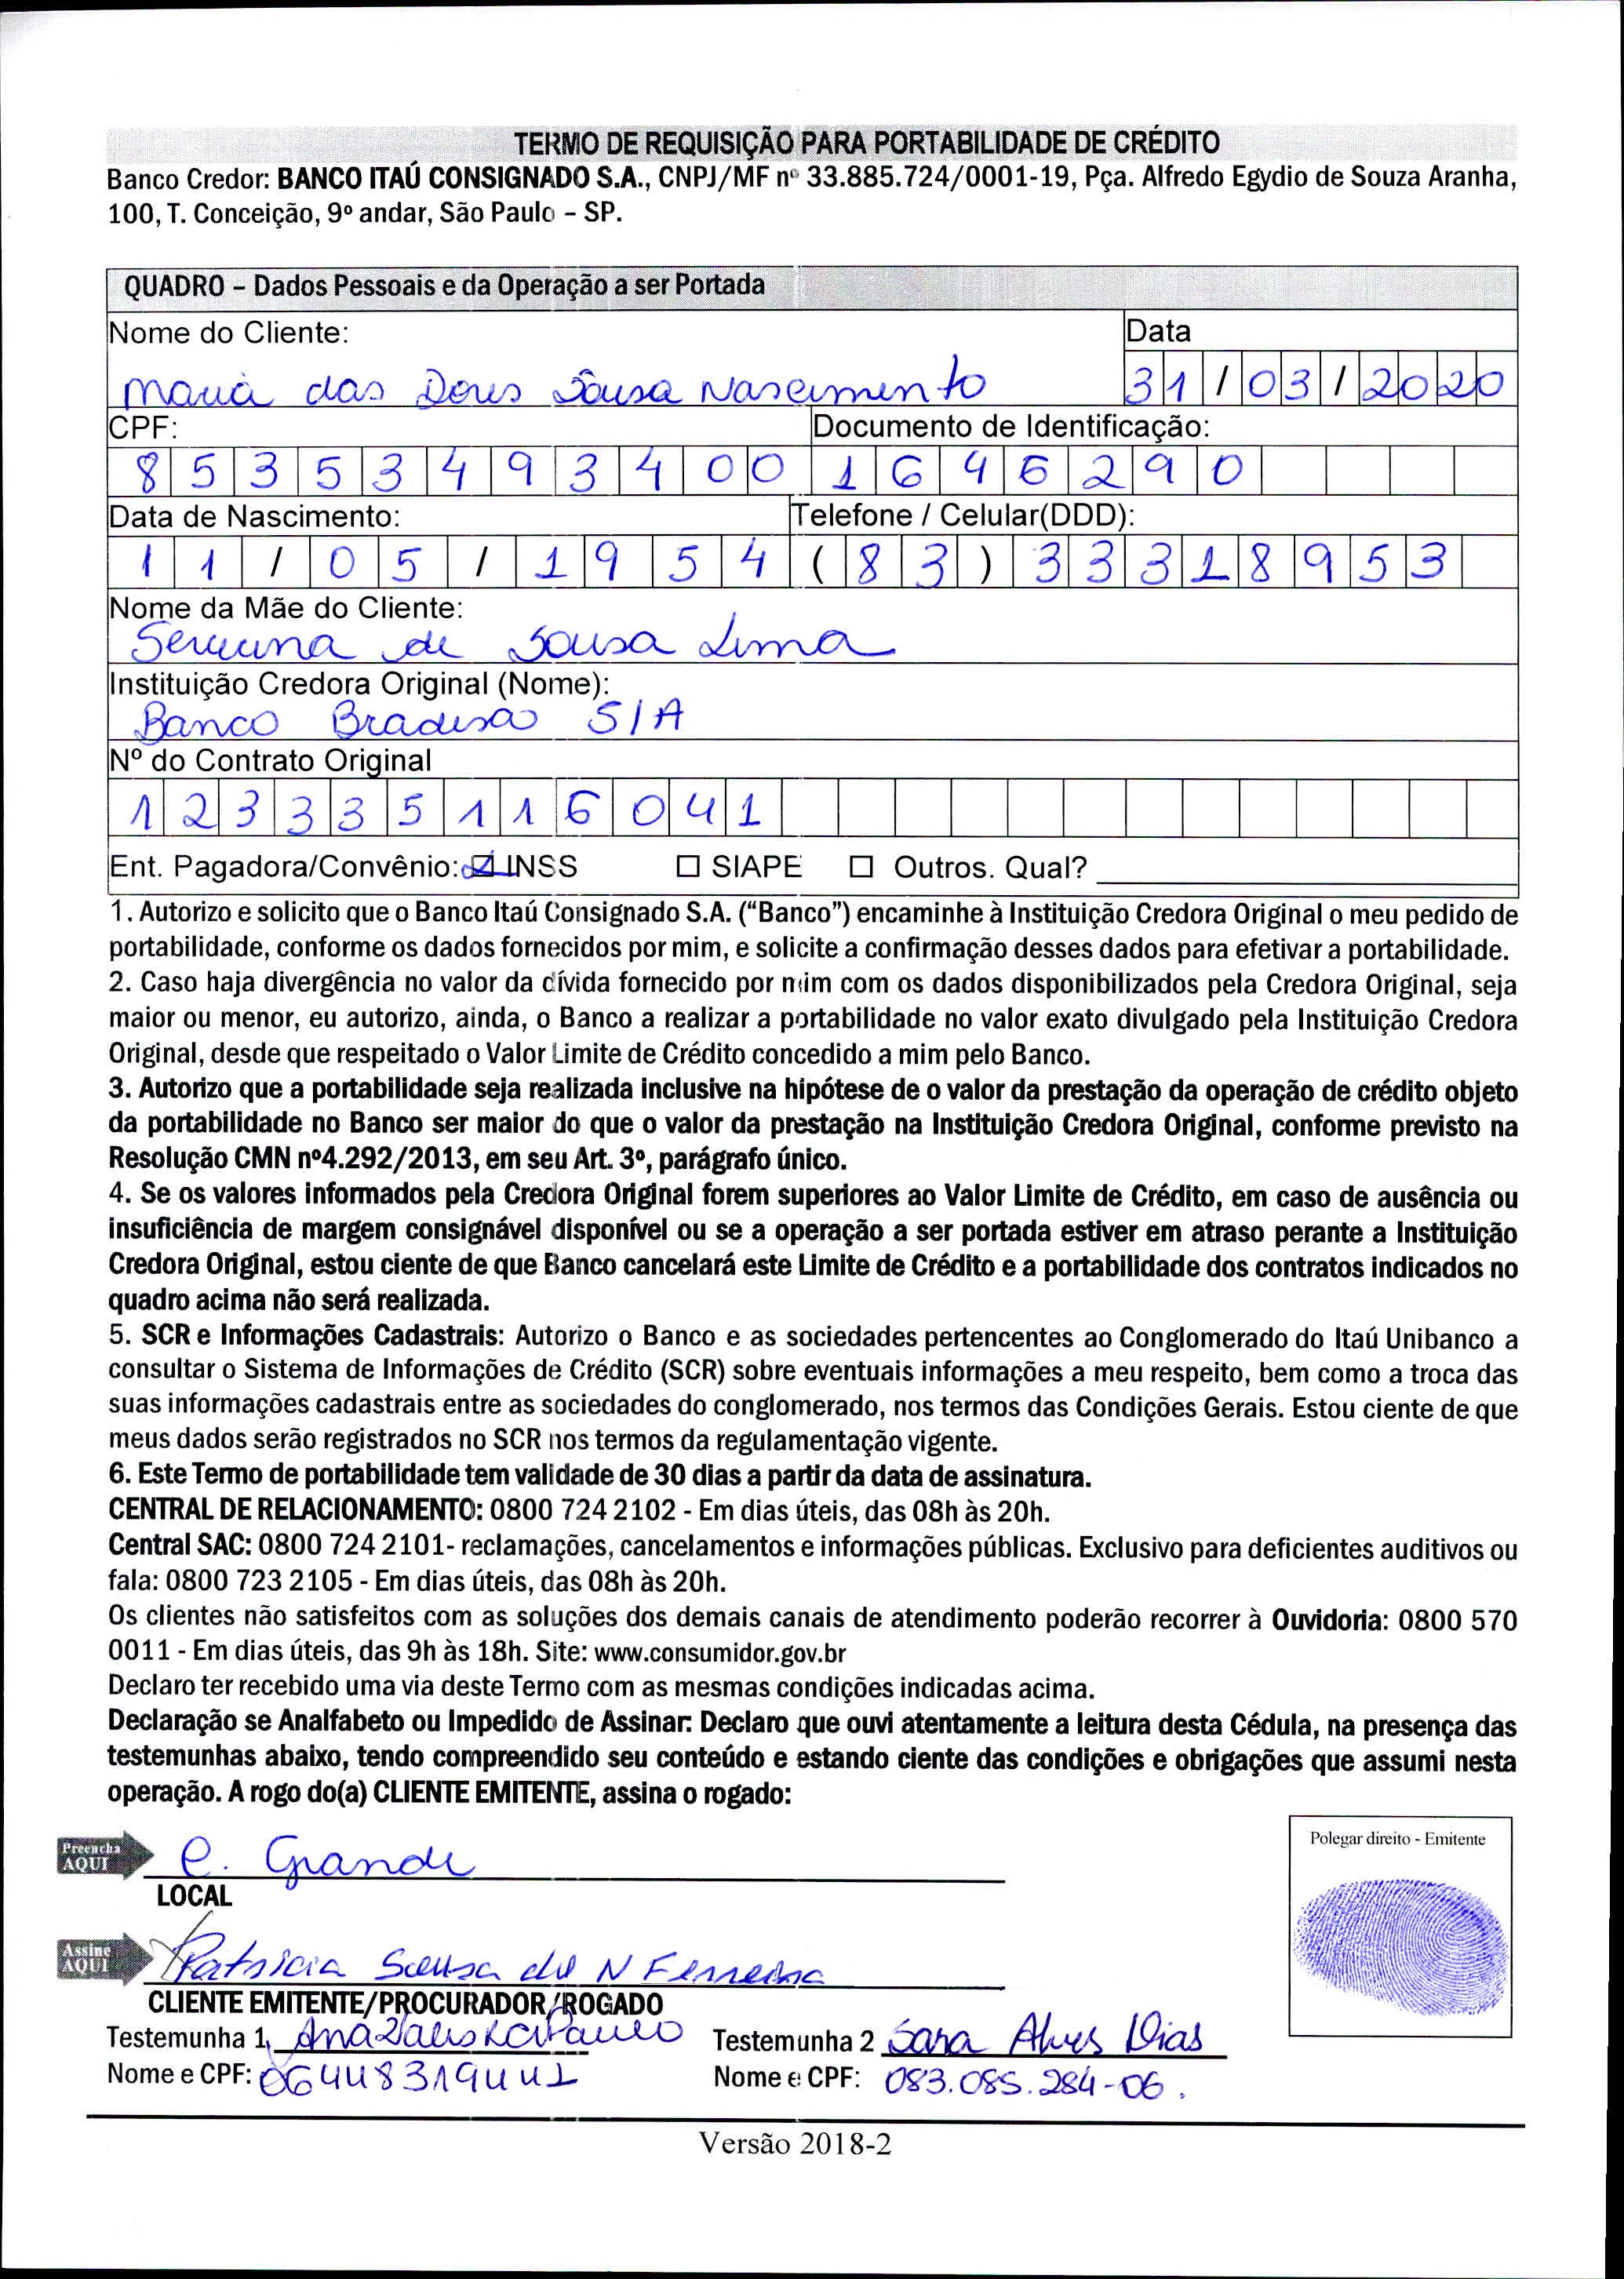 TERMO DE REQUISIÇÃO PARA PORTABILIDADE DE CRÉDITO
Banco Credor: BANCO ITAÚ CONSIGNADO S.A., CNPJ/MF nº 33.885.724/0001-19, Pça. Alfredo Egydio de Souza Aranha,
100, T. Conceição, 9º andar, São Paulo – SP.
QUADRO – Dados Pessoais e da Operação a ser Portada
Nome do Cliente: Data
Maria das Dores Sousa Nascimento 31/03/2020
CPF: Documento de Identificação:
85353493400 1646290
Data de Nascimento: Telefone / Celular(DDD):
11/05/1954 (83) 33318953
Nome da Mãe do Cliente:
Severina de Sousa Lima
Instituição Credora Original (Nome):
Banco Bradesco S/A
Nº do Contrato Original
123335116041
Ent. Pagadora/Convênio: ☑ INSS ☐ SIAPE ☐ Outros. Qual?
1. Autorizo e solicito que o Banco Itaú Consignado S.A. (“Banco”) encaminhe à Instituição Credora Original o meu pedido de
portabilidade, conforme os dados fornecidos por mim, e solicite a confirmação desses dados para efetivar a portabilidade.
2. Caso haja divergência no valor da dívida fornecido por mim com os dados disponibilizados pela Credora Original, seja
maior ou menor, eu autorizo, ainda, o Banco a realizar a portabilidade no valor exato divulgado pela Instituição Credora
Original, desde que respeitado o Valor Limite de Crédito concedido a mim pelo Banco.
3. Autorizo que a portabilidade seja realizada inclusive na hipótese de o valor da prestação da operação de crédito objeto
da portabilidade no Banco ser maior do que o valor da prestação na Instituição Credora Original, conforme previsto na
Resolução CMN nº4.292/2013, em seu Art. 3º, parágrafo único.
4. Se os valores informados pela Credora Original forem superiores ao Valor Limite de Crédito, em caso de ausência ou
insuficiência de margem consignável disponível ou se a operação a ser portada estiver em atraso perante a Instituição
Credora Original, estou ciente de que Banco cancelará este Limite de Crédito e a portabilidade dos contratos indicados no
quadro acima não será realizada.
5. SCR e Informações Cadastrais: Autorizo o Banco e as sociedades pertencentes ao Conglomerado do Itaú Unibanco a
consultar o Sistema de Informações de Crédito (SCR) sobre eventuais informações a meu respeito, bem como a troca das
suas informações cadastrais entre as sociedades do conglomerado, nos termos das Condições Gerais. Estou ciente de que
meus dados serão registrados no SCR nos termos da regulamentação vigente.
6. Este Termo de portabilidade tem validade de 30 dias a partir da data de assinatura.
CENTRAL DE RELACIONAMENTO: 0800 724 2102 - Em dias úteis, das 08h às 20h.
Central SAC: 0800 724 2101- reclamações, cancelamentos e informações públicas. Exclusivo para deficientes auditivos ou
fala: 0800 723 2105 - Em dias úteis, das 08h às 20h.
Os clientes não satisfeitos com as soluções dos demais canais de atendimento poderão recorrer à Ouvidoria: 0800 570
0011 - Em dias úteis, das 9h às 18h. Site: www.consumidor.gov.br
Declaro ter recebido uma via deste Termo com as mesmas condições indicadas acima.
Declaração se Analfabeto ou Impedido de Assinar: Declaro que ouvi atentamente a leitura desta Cédula, na presença das
testemunhas abaixo, tendo compreendido seu conteúdo e estando ciente das condições e obrigações que assumi nesta
operação. A rogo do(a) CLIENTE EMITENTE, assina o rogado:
Polegar direito - Emitente
Preencha AQUI C. Grande
LOCAL
Assine AQUI Patricia Sousa do N Ferreira
CLIENTE EMITENTE/PROCURADOR/ROGADO
Testemunha 1, Ana Testemunha 2 Sara Alves Dias
Nome e CPF: 06448319441 Nome e CPF: 083.085.284-06.
Versão 2018-2